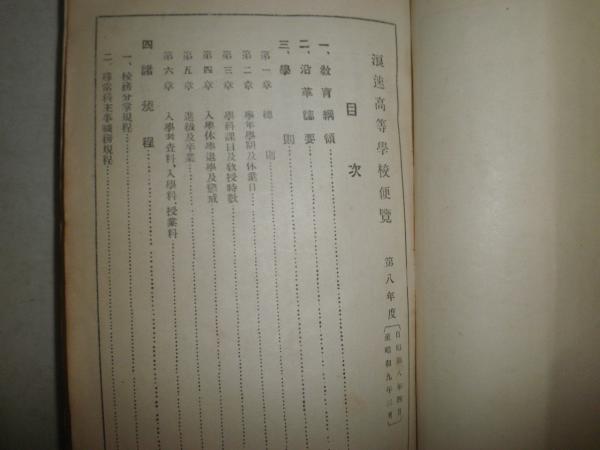 浪速高等學校便覽 第八年度 〔自昭和八年四月 至昭和九年三月〕
目次
一、教育綱領
二、沿革誌要
三、學則
第一章 總則
第二章 學年學期及休業日
第三章 學科課目及敎授時數
第四章 入學休學退學及懲戒
第五章 進級及卒業
第六章 入學考査料、入學料、授業料
四 諸規程
一、校務分掌規程
二、尋常科主事職務規程